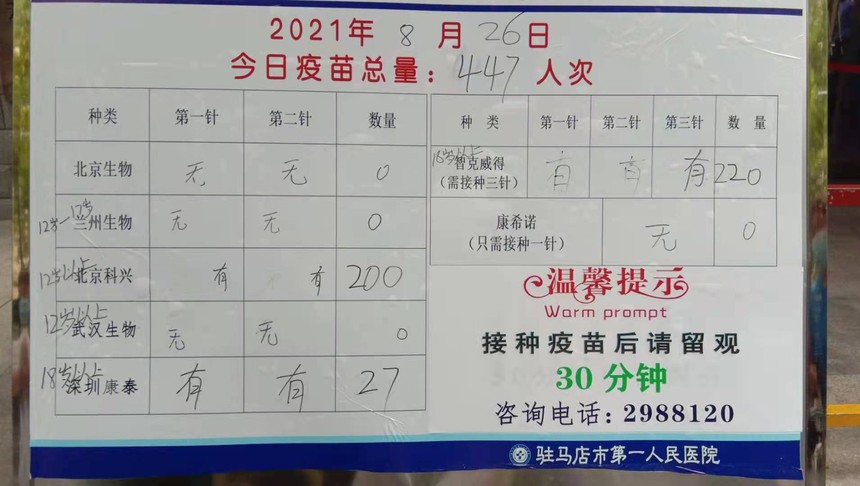 2021年 8 月 26日
今日疫苗总量: 447 人次
种类 第一针 第二针 数量
北京生物 无 无 0
兰州生物 无 无 0
12岁以上 北京科兴 有 有 200
12岁以上 武汉生物 无 无 0
18岁以上 深圳康泰 有 有 27
种 类 第一针 第二针 第三针 数 量
18岁以上 智克威得 有 有 有 220
(需接种三针)
康希诺 无 0
(只需接种一针)
温馨提示
Warm prompt
接种疫苗后请留观
30 分钟
咨询电话: 2988120
驻马店市第一人民医院